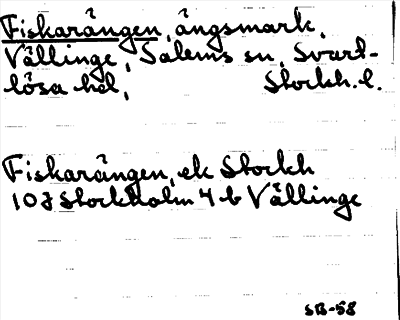 Fiskarängen, ängsmark,
Vällinge, Salems sn, Svart-
lösa hd, Stockh. l.
Fiskarängen, ek Stockh
10J Stockholm 4 b Vällinge
SB-58